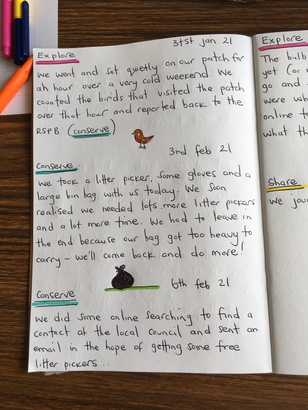 31st Jan 21
Explore
we went and sat quietly on our patch for
an hour over a very cold weekend. We
counted the birds that visited the patch
over that hour and reported back to the
RSPB (conserve)
3rd feb 21
Conserve.
we took a litter picker, some gloves and a
large bin bag with us today. We soon
realised we needed lots more litter pickers
and a lot more time. We had to leave in
the end because our bag got too heavy to
carry - we'll come back and do more!
6th feb 21
Conserve
We did some online searching to find a
contact at the local council and sent an
email in the hope of getting some free
litter pickers..
Explore
The bulb
yet (or
go and
were wh
online t
what th
Share
We jour